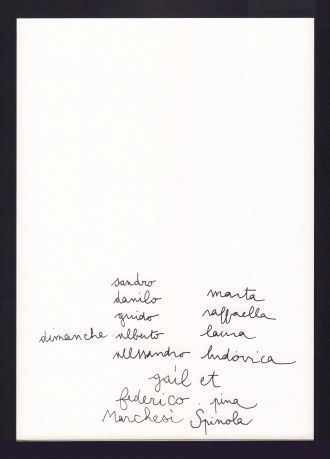 sandro
danilo marta
guido raffaella
dimanche alberto laura
alessandro ludóvica
gail et
federico pina
Marchesi Spinola